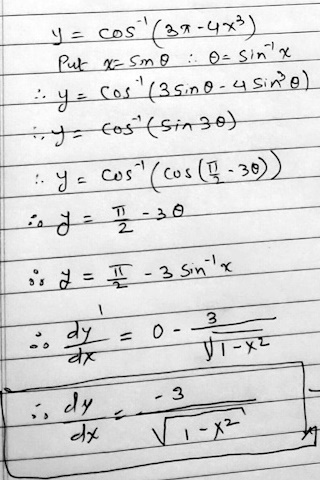 y = cos⁻¹(3x-4x³)
Put x=sinθ ∴ θ= sin⁻¹x
∴ y = cos⁻¹(3sinθ - 4 sin³θ)
∴ y= cos⁻¹(sin3θ)
∴ y= cos⁻¹(cos(π/2 - 3θ))
∴ y = π/2 - 3θ
∴ y = π/2 - 3 sin⁻¹x
∴ dy/dx = 0 - 3/√(1-x²)
∴ dy/dx = -3/√(1-x²)